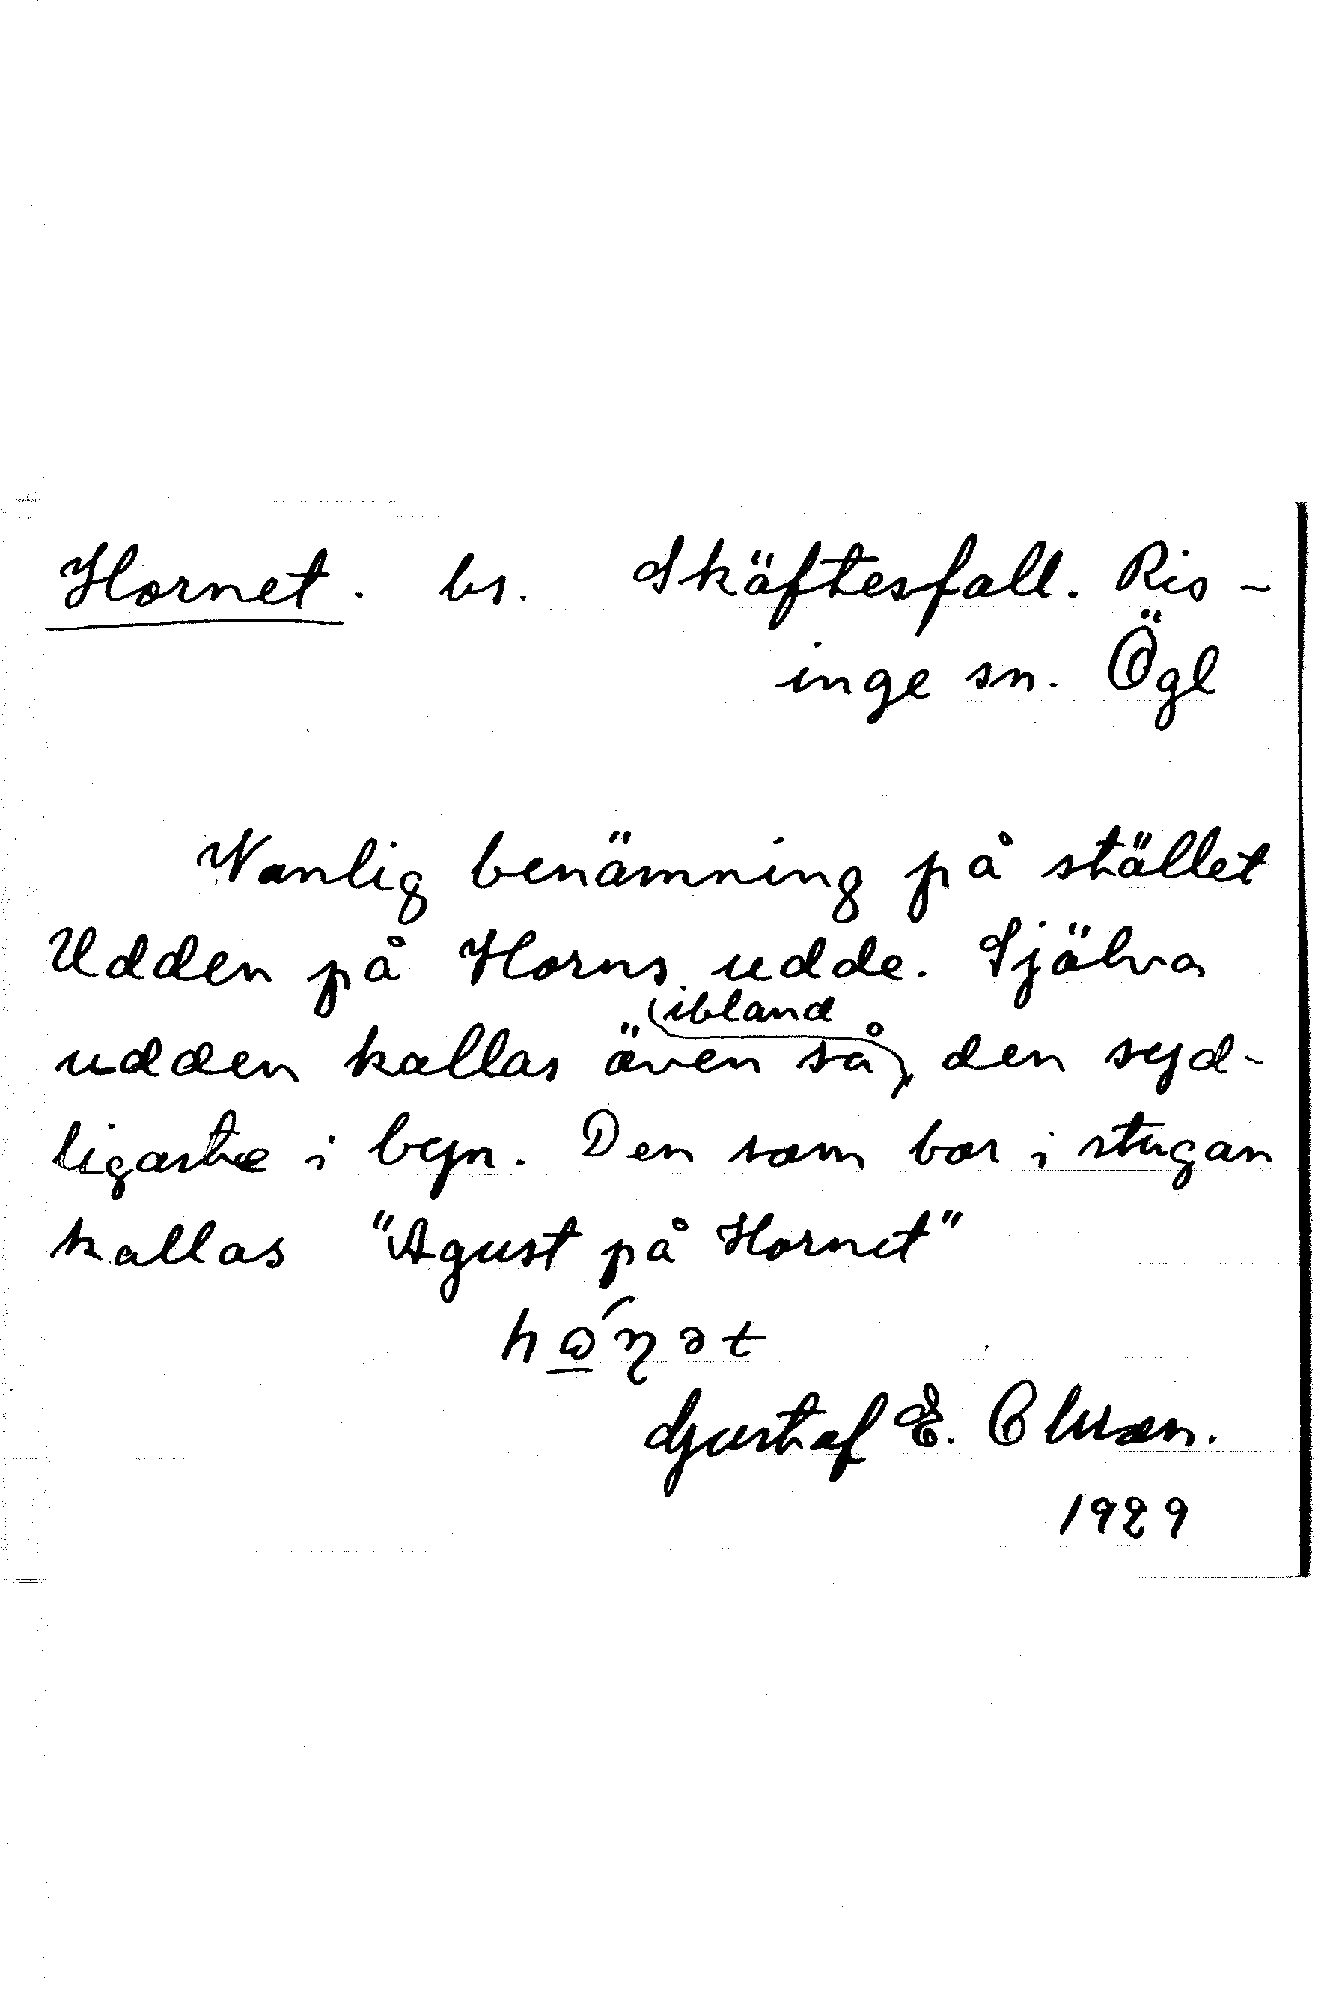 Hornet. bs. Skäftesfall. Ris-
inge sn. Ögl
Vanlig benämning på stället
Udden på Horns udde. Själva
udden kallas även så ibland, den syd-
ligaste i byn. Den som bor i stugan
kallas "Agust på Hornet"
Gustaf E. Olsson.
1929